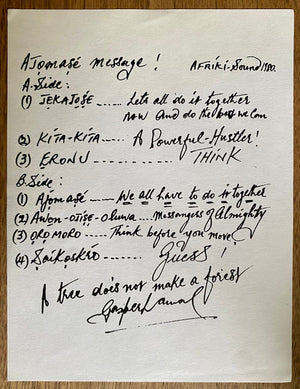 Ajomasé message! AFRIKI-Sound 1980.
A.Side:
(1) JEKAJOṢE ...... Lets all do it together
now and do the best we can
(2) KITA-KITA ..... A Powerful-Hustler!
(3) ERONU ------ THINK
B.Side:
(1) Ajomasé ...... We all have to do it together
(2) Awon-OJISE-Oluwa ... Messangers of Almighty
(3) ỌRỌMORO ---- Think before you move!
(4) Saikoskio ----- Guess!
A tree does not make a forest
Gasper Lawal